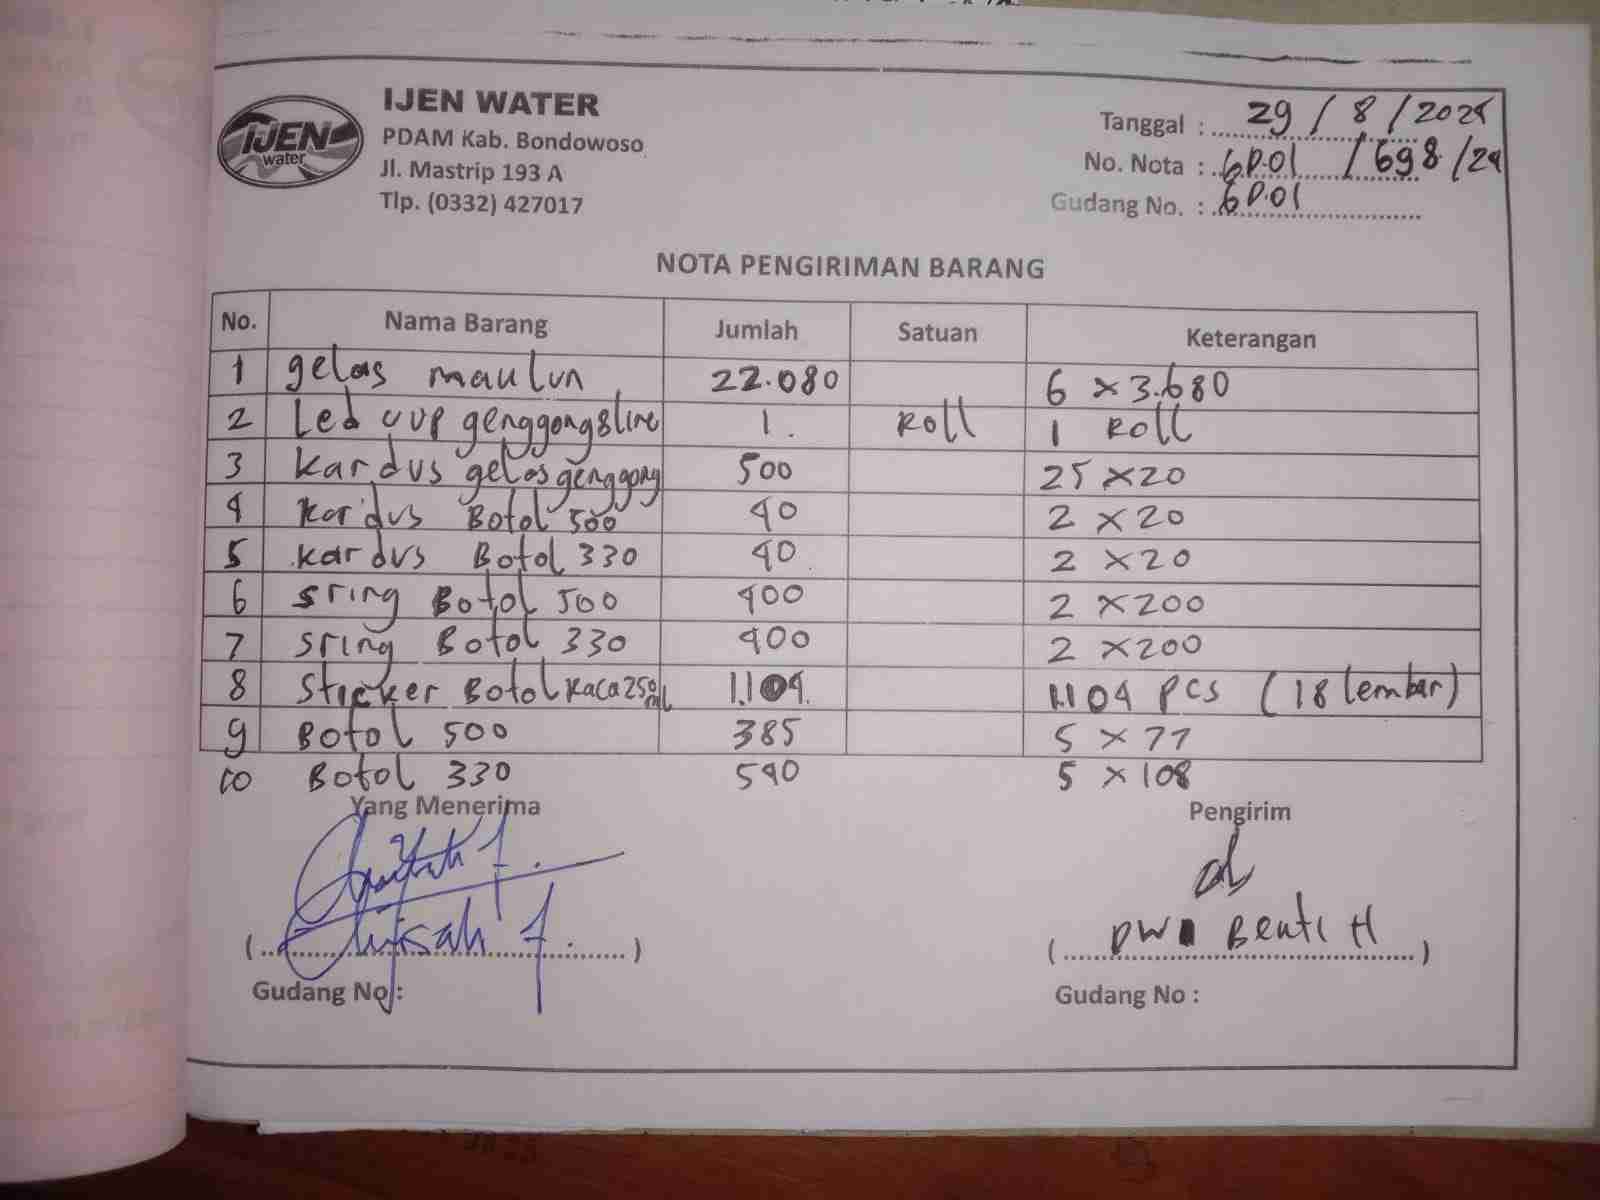 IJEN WATER
IJEN
water
PDAM Kab. Bondowoso
Jl. Mastrip 193 A
Tlp. (0332) 427017
Tanggal : 29 / 8 / 2024
No. Nota : GD.01 / 698 /24
Gudang No. : GD.01
NOTA PENGIRIMAN BARANG
No. Nama Barang Jumlah Satuan Keterangan
1 gelas maulun 22.080 6 x 3.680
2 Led cup genggong 8 line 1. Roll 1 Roll
3 Kardus gelas genggong 500 25 x 20
4 Kardus Botol 500 40 2 x 20
5 Kardus Botol 330 40 2 x 20
6 sring Botol 500 400 2 x 200
7 sring Botol 330 400 2 x 200
8 Sticker Botol kaca 250 ml 1.104 1.104 pcs (18 lembar)
9 Botol 500 385 5 x 77
10 Botol 330 540 5 x 108
Yang Menerima Pengirim
( ) ( DWI H )
Gudang No : Gudang No :